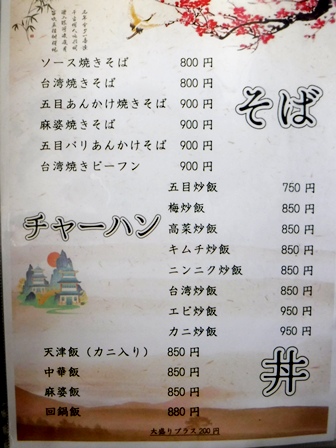 そば
ソース焼きそば 800円
台湾焼きそば 800円
五目あんかけ焼きそば 900円
麻婆焼きそば 900円
五目バリあんかけそば 900円
台湾焼きビーフン 900円
チャーハン
五目炒飯 750円
梅炒飯 850円
高菜炒飯 850円
キムチ炒飯 850円
ニンニク炒飯 850円
台湾炒飯 850円
エビ炒飯 950円
カニ炒飯 950円
丼
天津飯（カニ入り） 850円
中華飯 850円
麻婆飯 850円
回鍋飯 880円
大盛りプラス200円